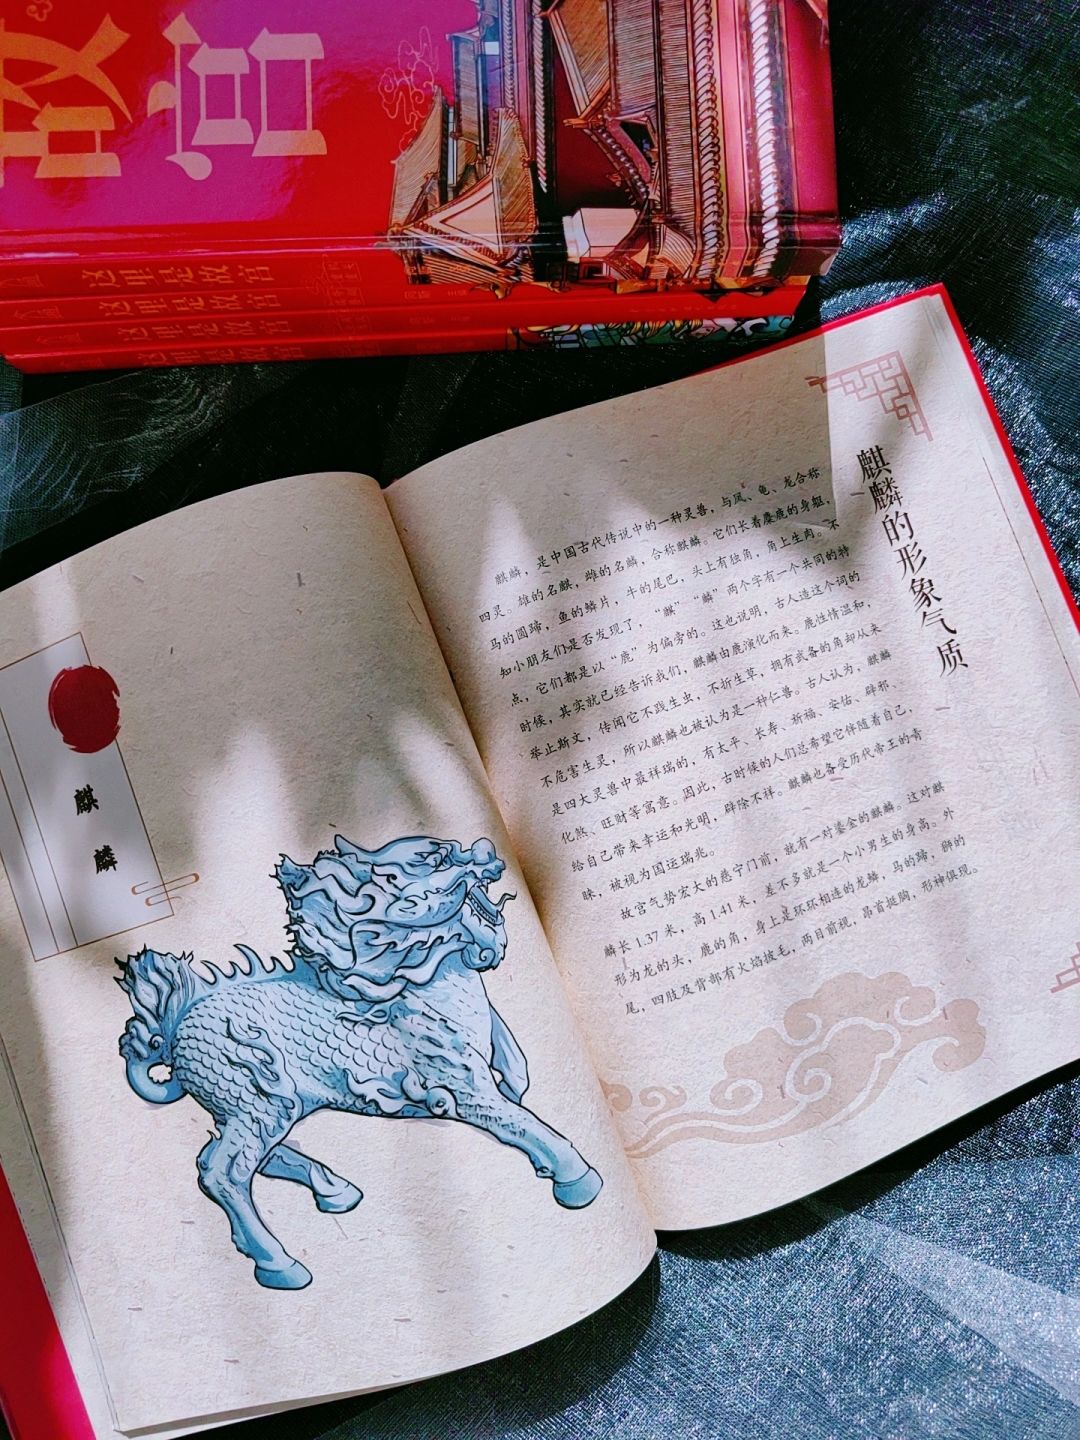 故宫
这里是故宫
这里是故宫
这里是故宫
这里是故宫
麒麟
麒麟的形象气质
麒麟，是中国古代传说中的一种灵兽，与凤、龟、龙合称
四灵。雄的名麒，雌的名麟，合称麒麟。它们长着麋鹿的身躯，
马的圆蹄，鱼的鳞片，牛的尾巴，头上有独角，角上生肉。不
知小朋友们是否发现了，“麒”“麟”两个字有一个共同的特
点，它们都是以“鹿”为偏旁的。这也说明，古人造这个词的
时候，其实就已经告诉我们，麒麟由鹿演化而来。鹿性情温和，
举止斯文，传闻它不践生虫，不折生草，拥有武备的角却从来
不危害生灵，所以麒麟也被认为是一种仁兽。古人认为，麒麟
是四大灵兽中最祥瑞的，有太平、长寿、祈福、安佑、辟邪、
化煞、旺财等寓意。因此，古时候的人们总希望它伴随着自己，
给自己带来幸运和光明，辟除不祥。麒麟也备受历代帝王的青
睐，被视为国运瑞兆。
故宫气势宏大的慈宁门前，就有一对鎏金的麒麟。这对麒
麟长 1.37 米，高 1.41 米，差不多就是一个小男生的身高。外
形为龙的头，鹿的角，身上是环环相连的龙鳞，马的蹄，狮的
尾，四肢及背部有火焰披毛，两目前视，昂首挺胸，形神俱现。